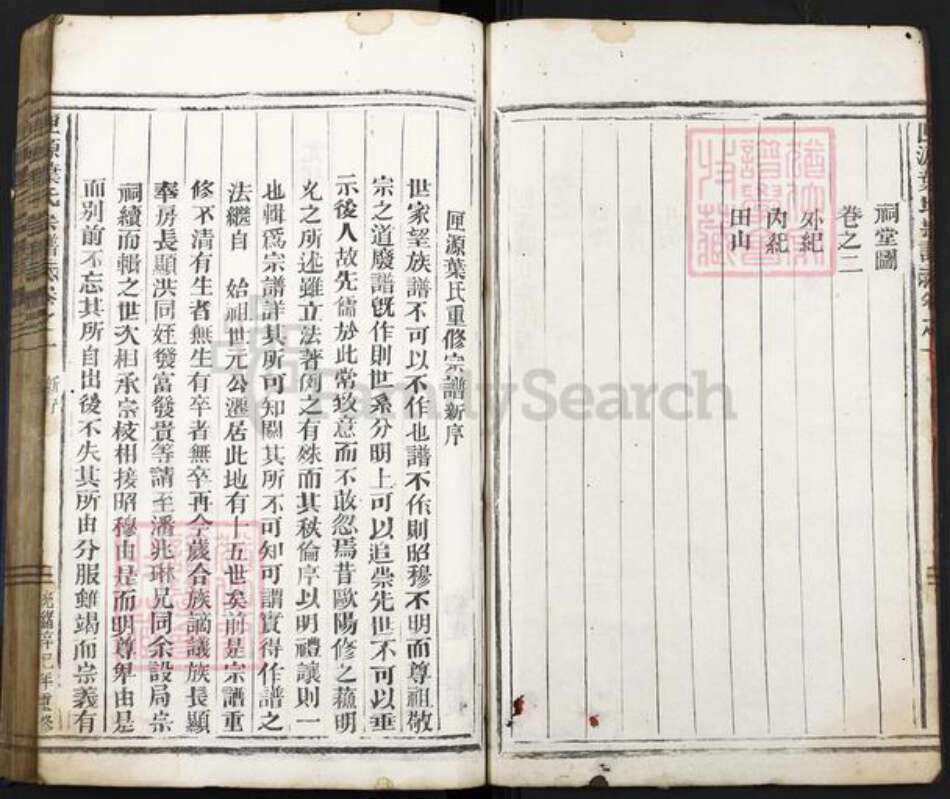 祠堂圖
卷之二
外紀
內紀
田山
匣源葉氏重修宗譜新序
世家望族譜不可以不作也譜不作則昭穆不明而尊祖敬
宗之道廢譜旣作則世系分明上可以追崇先世下可以垂
示後人故先儒於此常致意而不敢忽焉昔歐陽修之蘓明
允之所述雖立法著例之有殊而其秩倫序以明禮讓則一
也輯爲宗譜詳其所可知闕其所不可知可謂實得作譜之
法繼自 始祖世元公遷居此地有十五世矣前是宗譜重
修不清有生者無生有卒者無卒再今歲合族謫議族長顯
奉房長顯洪同姪發富發貴等請至潘兆琳兄同余設局宗
祠續而輯之世次相承宗枝相接昭穆由是而明尊卑由是
而别前不忘其所自出後不失其所由分服雖竭而宗義有
匣源葉氏宗譜 卷之一
新序
光緒辛巳年重修
FamilySearch